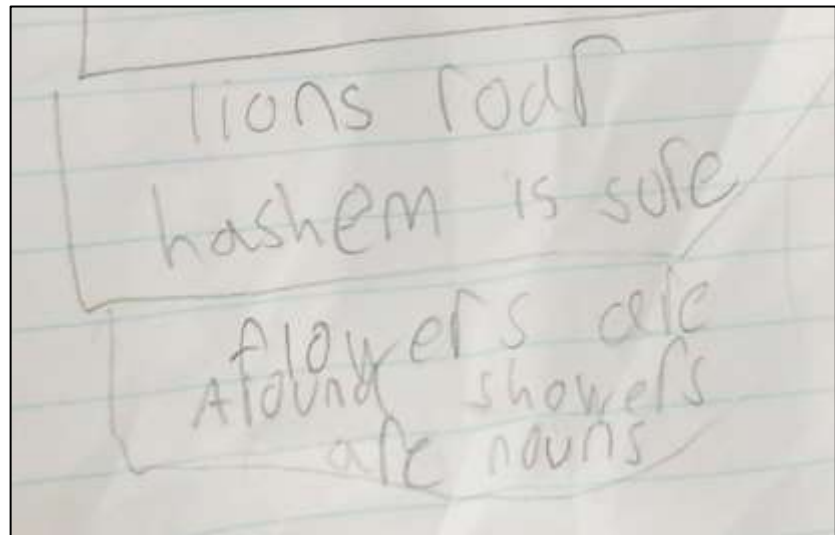 lions roar
hashem is sure
flowers are
Around showers
are nouns